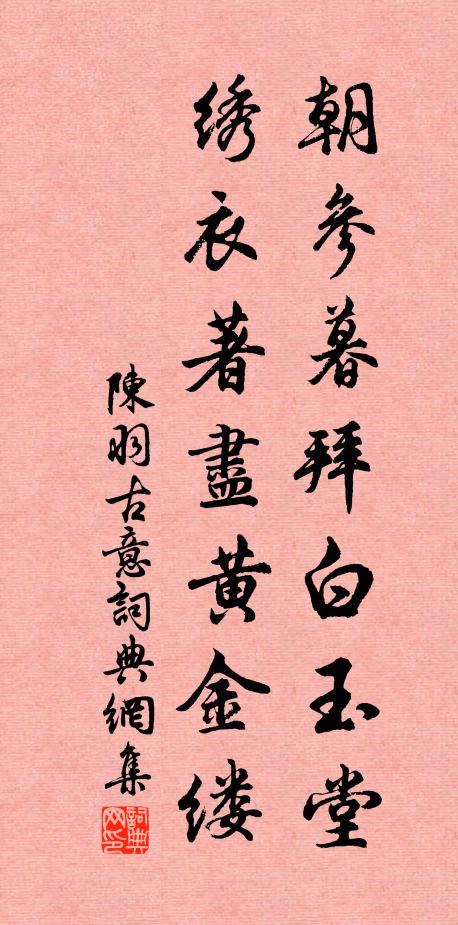 朝參暮拜白玉堂
绣衣著盡黄金缕
陳羽古意詞典網集
詞典網印